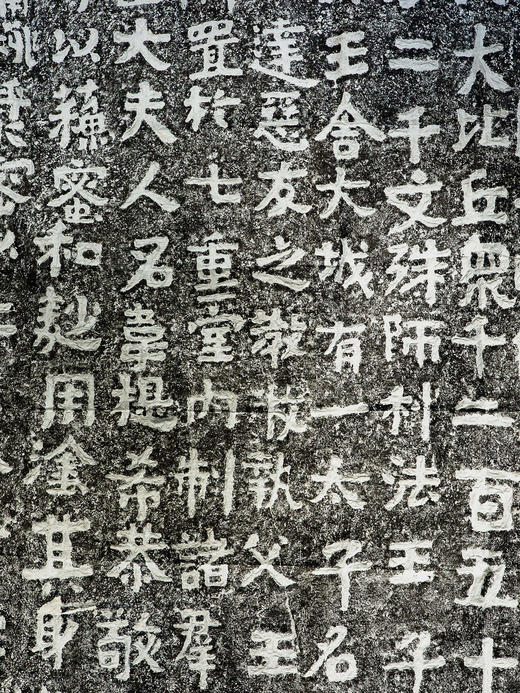 大比丘衆千二百五十
二千文殊師利法王子
王舍大城有一太子名
達惡友之教收執父王
置於七重室內制諸羣
大夫人名韋提希恭敬
以蘇蜜和麨用塗其身